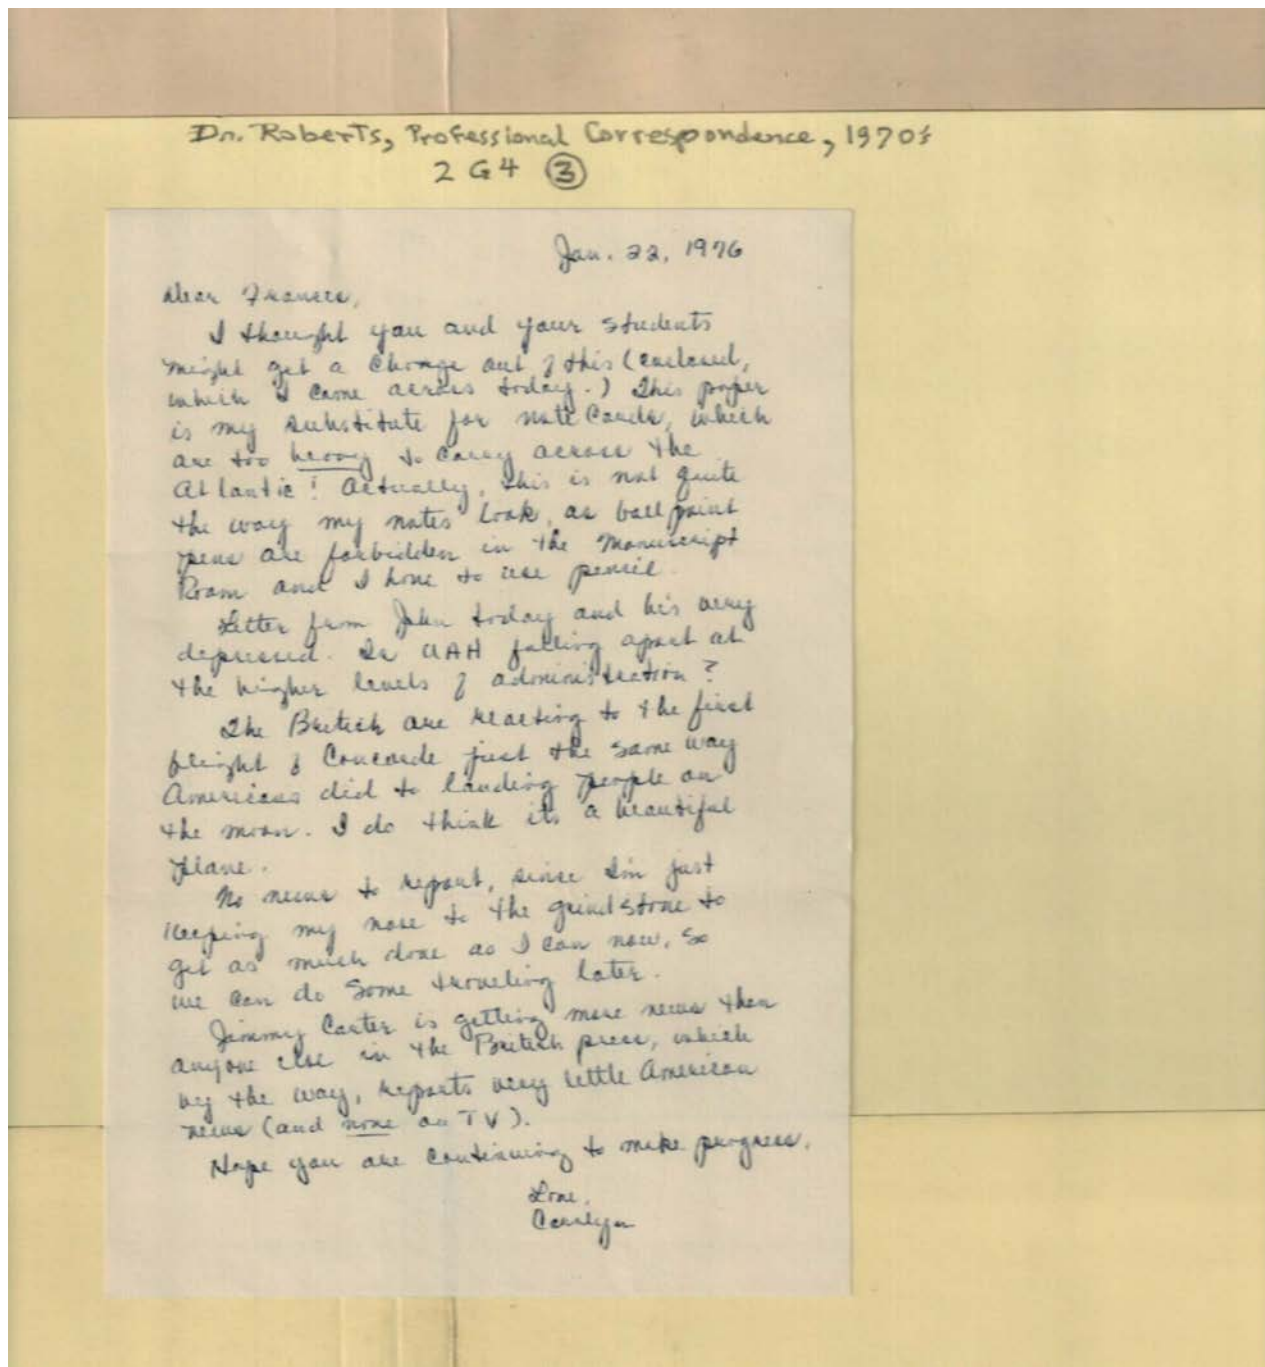 Dr. Roberts, Professional Correspondence, 1970s
2 G4 3
Jan. 22, 1976
Dear Frances,
I thought you and your students
might get a change out of this (enclosed,
which I came across today.) This paper
is my substitute for note cards, which
are too heavy to carry across the
Atlantic! Actually, this is not quite
the way my notes look, as ball point
pens are forbidden in the Manuscript
Room and I have to use pencil.
Letter from John today and he's very
depressed. Is UAH falling apart at
the higher levels of administration?
The British are reacting to the first
flight of Concorde just the same way
Americans did to landing people on
the moon. I do think its a beautiful
plane.
No news to report, since I'm just
keeping my nose to the grindstone to
get as much done as I can now, so
we can do some traveling later.
Jimmy Carter is getting more news than
anyone else in the British press, which
by the way, reports very little American
news (and none on TV).
Hope you are continuing to make progress.
Love,
Carolyn